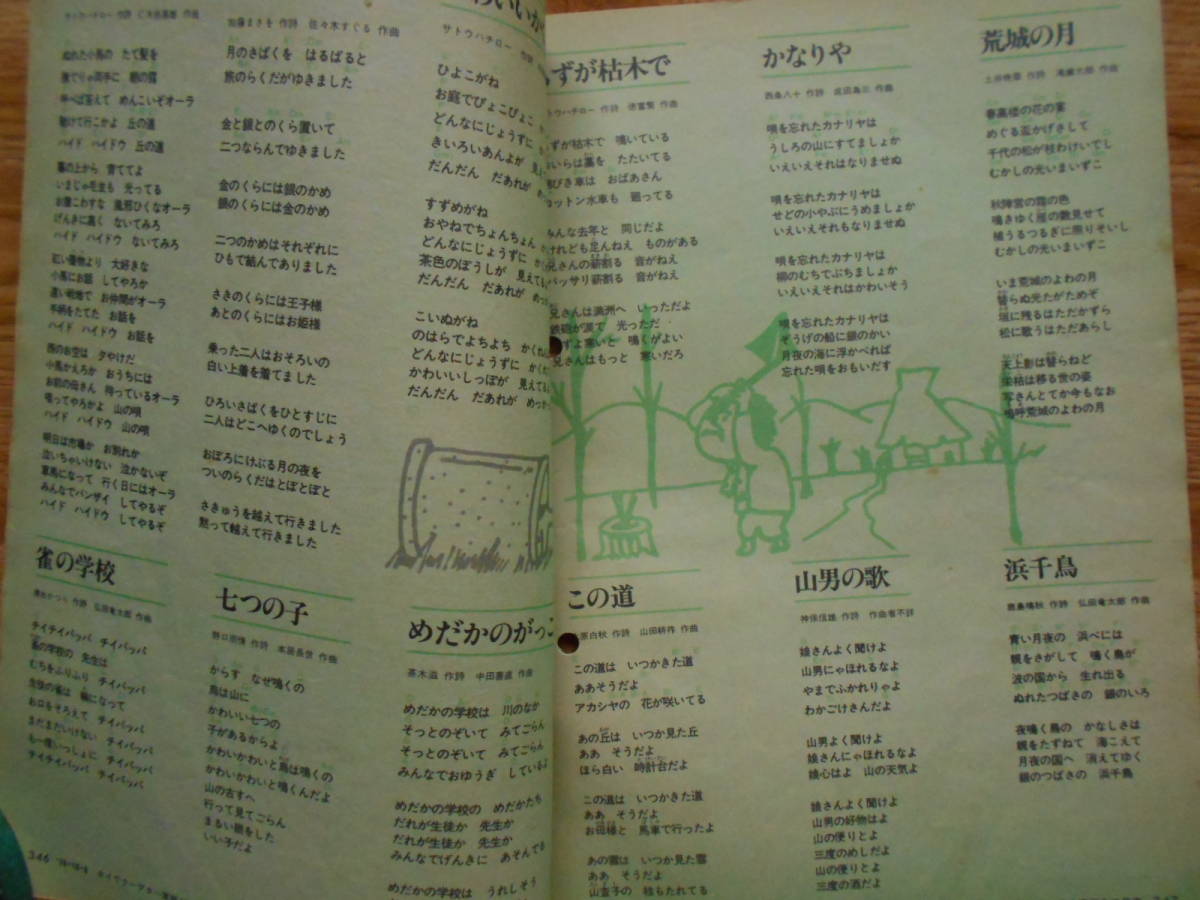 サトウハチロー 作詩 仁木他喜雄 作曲
ぬれた小馬の たて髪を
撫でりゃ両手に 朝の露
呼べば答えて めんこいぞオーラ
駈けて行こかよ 丘の道
ハイド ハイドウ 丘の道
藁の上から 育ててよ
いまじゃ毛並も 光ってる
お腹こわすな 風邪ひくなオーラ
げんきに高く ないてみろ
ハイド ハイドウ ないてみろ
紅い着物より 大好きな
小馬にお話 してやろか
遠い戦地で お仲間がオーラ
手柄をたてた お話を
ハイド ハイドウ お話を
西のお空は 夕やけだ
小馬かえろか おうちには
お前の母さん 待っているオーラ
唄ってやろかよ 山の唄
ハイド ハイドウ 山の唄
明日は市場か お別れか
泣いちゃいけない 泣かないぞ
軍馬になって 行く日にはオーラ
みんなでバンザイ してやるぞ
ハイド ハイドウ してやるぞ
加藤まさを 作詩 佐々木すぐる 作曲
月のさばくを はるばると
旅のらくだがゆきました
金と銀とのくら置いて
二つならんでゆきました
金のくらには銀のかめ
銀のくらには金のかめ
二つのかめはそれぞれに
ひもで結んでありました
さきのくらには王子様
あとのくらにはお姫様
乗った二人はおそろいの
白い上着を着てました
ひろいさばくをひとすじに
二人はどこへゆくのでしょう
おぼろにけぶる月の夜を
ついのらくだはとぼとぼと
さきゅうを越えて行きました
黙って越えて行きました
わいいか
サトウハチロー 作詩
ひよこがね
お庭でぴょこぴょこ か
どんなにじょうずに か
きいろいあんよが 見え
だんだん だあれが め
すずめがね
おやねでちょんちょん か
どんなにじょうずに か
茶色のぼうしが 見えて
だんだん だあれが めっ
こいぬがね
のはらでよちよち かくれ
どんなにじょうずに かく
かわいいしっぽが 見えて
だんだん だあれが めっか
雀の学校
清水かつら 作詩 弘田竜太郎 作曲
チイチイパッパ チイパッパ
雀の学校の 先生は
むちをふりふり チイパッパ
生徒の雀は 輪になって
お口をそろえて チイパッパ
まだまだいけない チイパッパ
も一度いっしょに チイパッパ
チイチイパッパ チイパッパ
七つの子
野口雨情 作詩 本居長世 作曲
からす なぜ鳴くの
烏は山に
かわいい七つの
子があるからよ
かわいかわいと烏は鳴くの
かわいかわいと鳴くんだよ
山の古すへ
行って見てごらん
まるい眼をした
いい子だよ
めだかのがっこ
茶木滋 作詩 中田喜直 作曲
めだかの学校は 川のなか
そっとのぞいて みてごらん
そっとのぞいて みてごらん
みんなでおゆうぎ しているよ
めだかの学校の めだかたち
だれが生徒か 先生か
だれが生徒か 先生か
みんなでげんきに あそんでる
めだかの学校は うれしそう
346
ずが枯木で
トウハチロー 作詩 徳富繁 作曲
ずが枯木で 鳴いている
おいらは藁を たたいてる
びき車は おばあさん
コットン水車も 廻ってる
みんな去年と 同じだよ
けれども足んねえ ものがある
兄さんの薪割る 音がねえ
バッサリ薪割る 音がねえ
兄さんは満洲へ いっただよ
鉄砲が涙で 光っただ
ずよ寒いと 鳴くがよい
兄さんはもっと 寒いだろ
かなりや
西条八十 作詩 成田為三 作曲
唄を忘れたカナリヤは
うしろの山にすてましょか
いえいえそれはなりませぬ
唄を忘れたカナリヤは
せどの小やぶにうめましょか
いえいえそれもなりませぬ
唄を忘れたカナリヤは
柳のむちでぶちましょか
いえいえそれはかわいそう
唄を忘れたカナリヤは
ぞうげの船に銀のかい
月夜の海に浮かべれば
忘れた唄をおもいだす
荒城の月
土井晩翠 作詩 滝廉太郎 作曲
春高楼の花の宴
めぐる盃かげさして
千代の松が枝わけいでし
むかしの光いまいずこ
秋陣営の霜の色
鳴きゆく雁の数見せて
植うるつるぎに照りそいし
むかしの光いまいずこ
いま荒城のよわの月
替らぬ光たがためぞ
垣に残るはただかずら
松に歌うはただあらし
天上影は替らねど
栄枯は移る世の姿
写さんとてか今もなお
嗚呼荒城のよわの月
この道
原白秋 作詩 山田耕筰 作曲
この道は いつかきた道
ああそうだよ
アカシヤの 花が咲いてる
あの丘は いつか見た丘
ああ そうだよ
ほら白い 時計台だよ
この道は いつかきた道
ああ そうだよ
お母様と 馬車で行ったよ
あの雲は いつか見た雲
ああ そうだよ
山査子の 枝もたれてる
山男の歌
神保信雄 作詩 作曲者不詳
娘さんよく聞けよ
山男にゃほれるなよ
やまでふかれりゃよ
わかごけさんだよ
山男よく聞けよ
娘さんにゃほれるなよ
娘心はよ 山の天気よ
娘さんよく聞けよ
山男の好物はよ
山の便りとよ
三度のめしだよ
山の便りとよ
三度の酒だよ
浜千鳥
鹿島鳴秋 作詩 弘田竜太郎 作曲
青い月夜の 浜べには
親をさがして 鳴く鳥が
波の国から 生れ出る
ぬれたつばさの 銀のいろ
夜鳴く鳥の かなしさは
親をたずねて 海こえて
月夜の国へ 消えてゆく
銀のつばさの 浜千鳥